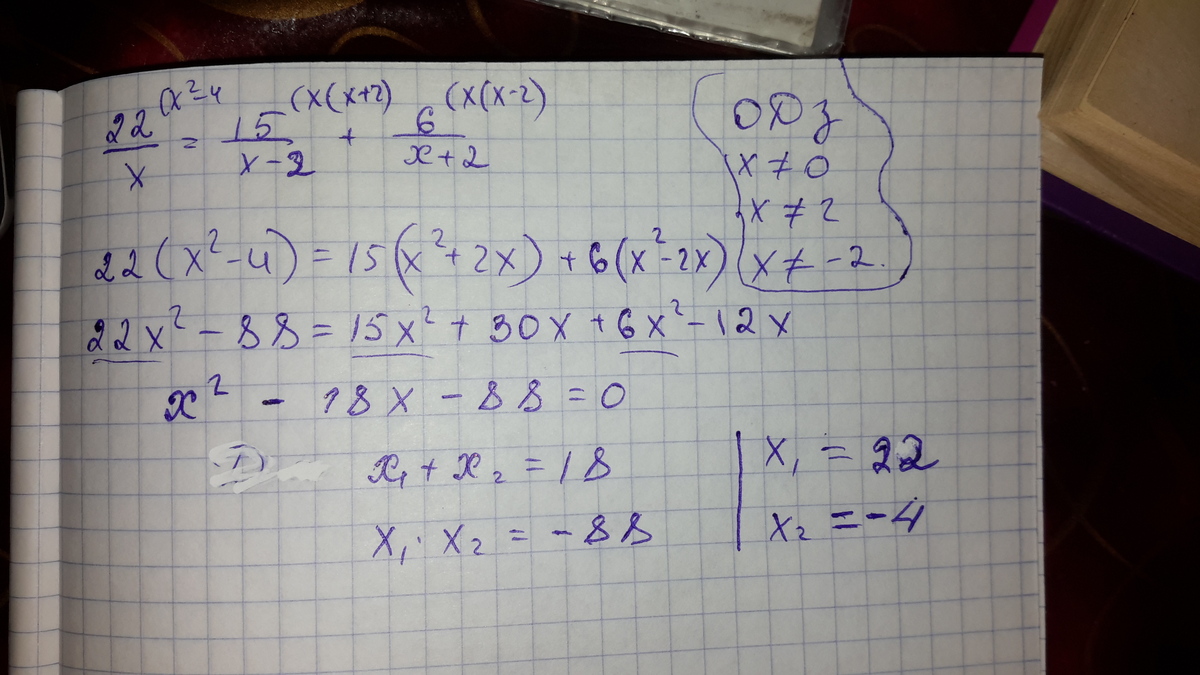 22/x (x²-4 = 15/(x-2) (x(x+2) + 6/(x+2) (x(x-2)
ОДЗ
x ≠ 0
x ≠ 2
x ≠ -2.
22(x²-4) = 15(x²+2x) + 6(x²-2x)
22x² - 88 = 15x² + 30x + 6x² - 12x
x² - 18x - 88 = 0
x₁ + x₂ = 18
x₁ · x₂ = -88
x₁ = 22
x₂ = -4